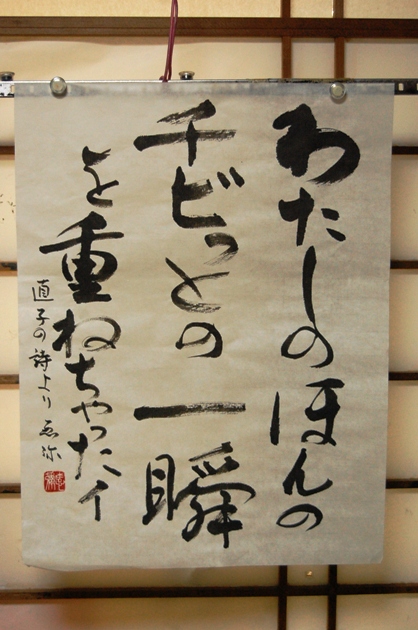 わたしのほんの
チビっとの一瞬
を重ねちゃったイ
直子の詩より